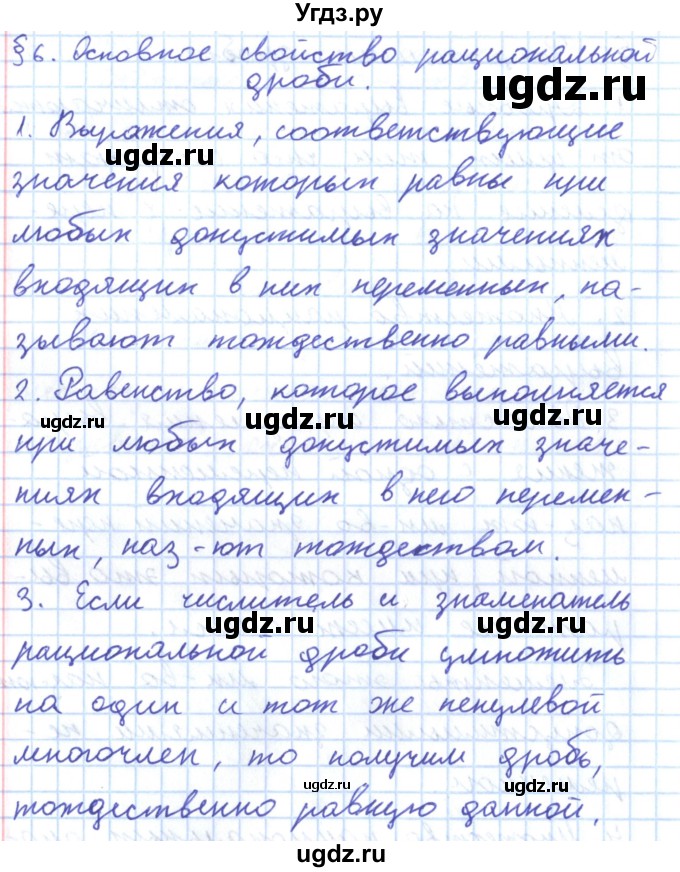 Угдз.ру
§6. Основное свойство рациональной
дроби.
ugdz.ru
1. Выражения, соответствующие
ugdz.ru
значения которых равны при
любых допустимых значениях
входящих в них переменных, на-
зывают тождественно равными.
2. Равенство, которое выполняется
ugdz.ru ugdz.ru ugdz.ru
при любых допустимых значе-
ниях входящих в него перемен-
ных, наз-ют тождеством.
3. Если числитель и знаменатель
ugdz.ru ugdz.ru
рациональной дроби умножить
на один и тот же ненулевой
многочлен, то получим дробь,
ugdz.ru ugdz.ru
тождественно равную данной.
ugdz.ru